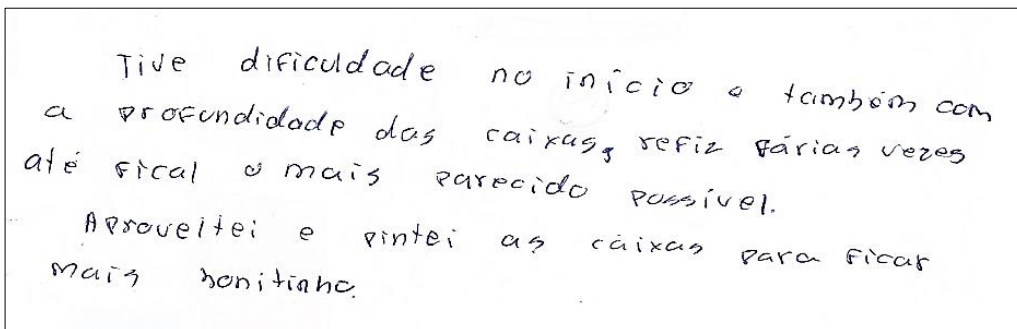 Tive dificuldade no início e também com
a profundidade das caixas, refiz fárias vezes
até fical o mais parecido possível.
Aproveitei e pintei as caixas para ficar
mais bonitinho.